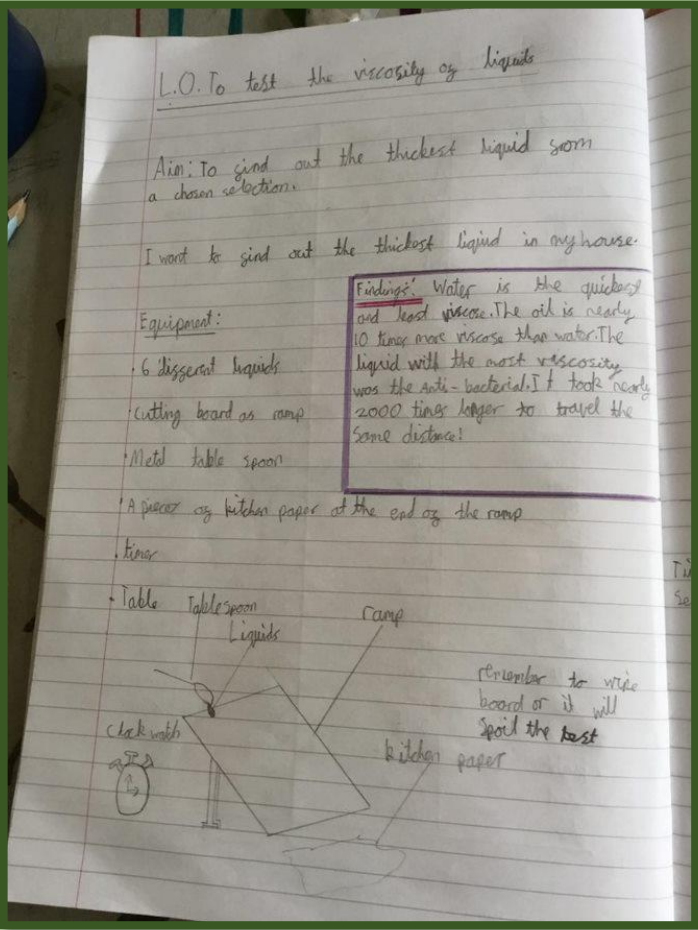 L.O. To test the viscosity of liquids
Aim: To find out the thickest liquid from
a chosen selection.
I want to find out the thickest liquid in my house.
Equipment:
• 6 different liquids
• Cutting board as ramp
• Metal table spoon
• A piecer of kitchen paper at the end of the ramp
• timer
• Table
Findings: Water is the quickest
and least viscose. The oil is nearly
10 times more viscose than water. The
liquid with the most viscosity
was the Anti-bacterial. It took nearly
2000 times longer to travel the
same distance!
Tablespoon
Liquids
ramp
remember to wipe
board or it will
spoil the test
Clock watch
kitchen paper